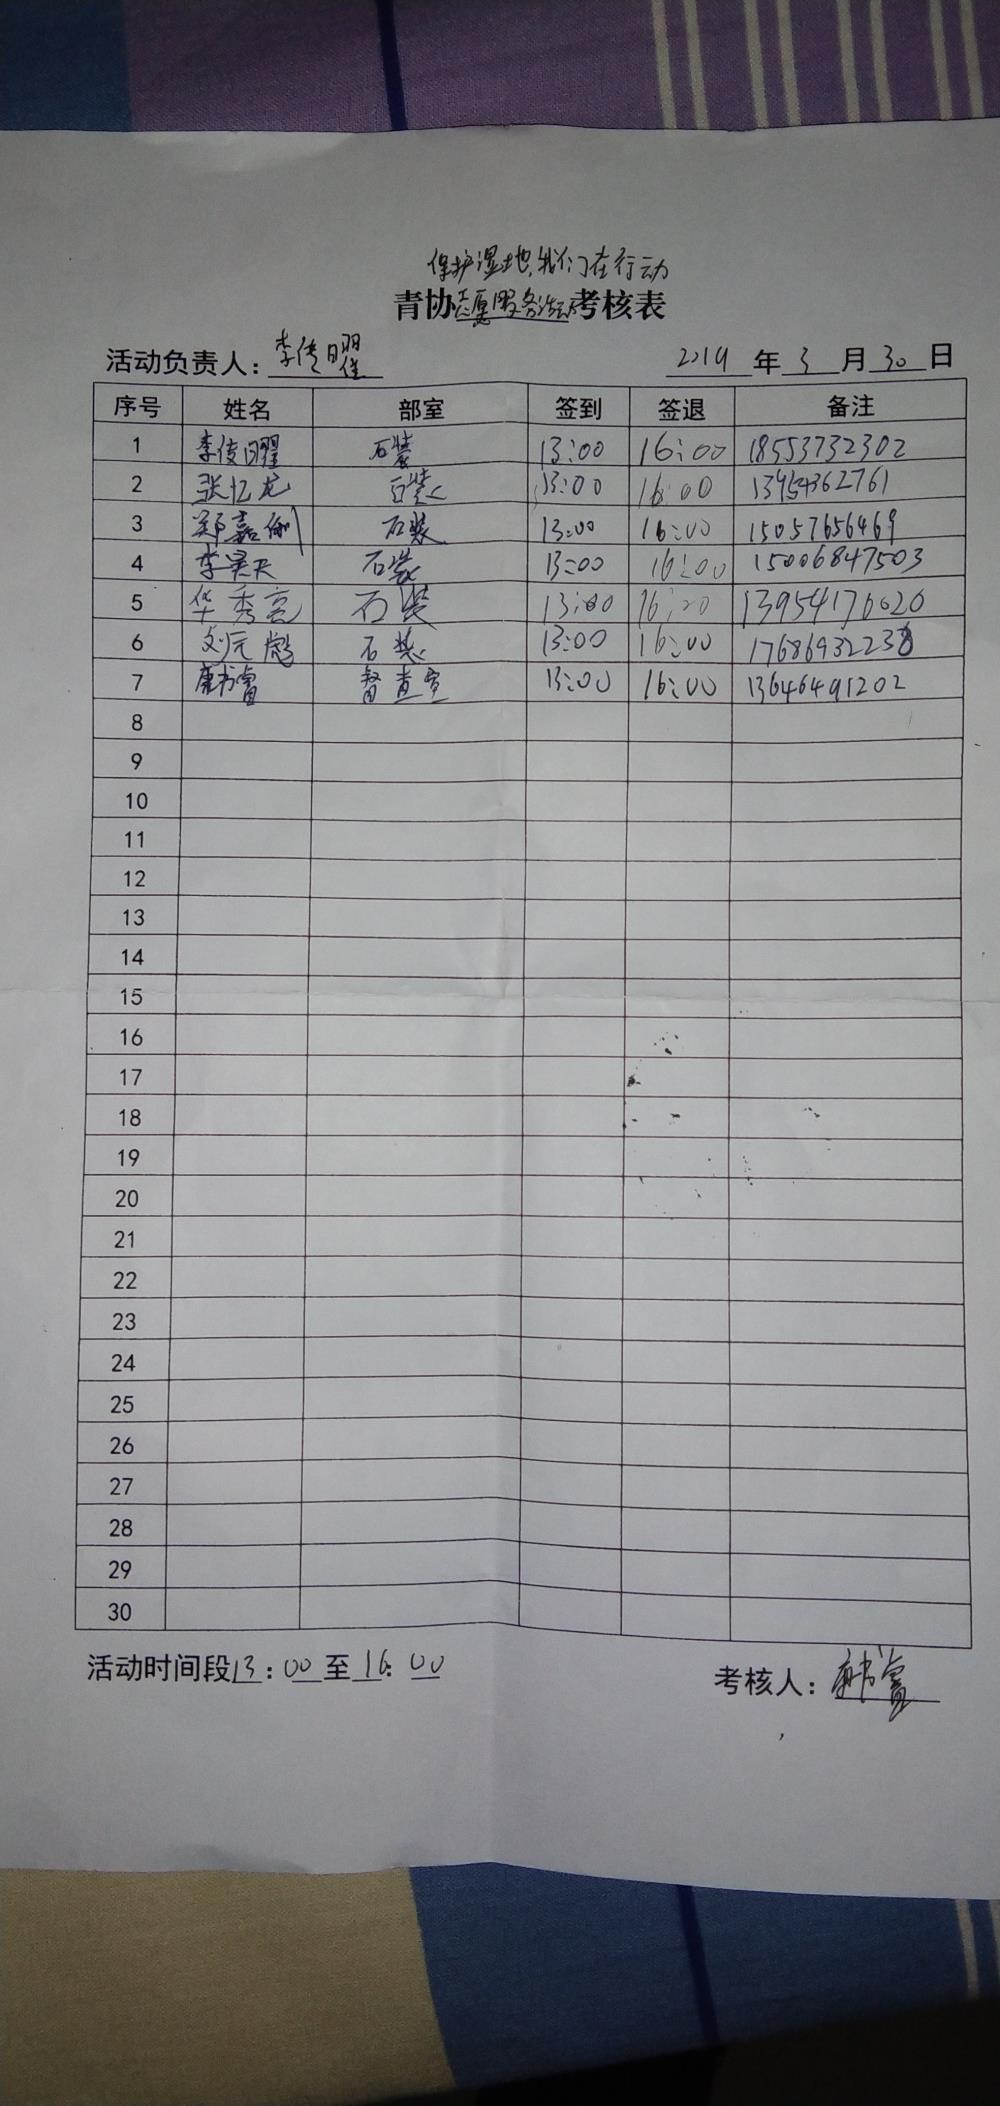 保护湿地,我们在行动
青协志愿服务活动考核表
活动负责人: 李传曜 2019 年 3 月 30 日
序号 姓名 部室 签到 签退 备注
1 李传曜 石装 13:00 16:00 18553732302
2 张忆龙 石装 13:00 16:00 13954362761
3 郑嘉俐 石装 13:00 16:00 15057656469
4 李昊天 石装 13:00 16:00 15006847503
5 华秀亮 石装 13:00 16:00 13954176620
6 刘元彪 石装 13:00 16:00
7 唐书睿 督查室 13:00 16:00 13646491202
8
9
10
11
12
13
14
15
16
17
18
19
20
21
22
23
24
25
26
27
28
29
30
活动时间段 13:00 至 16:00 考核人: